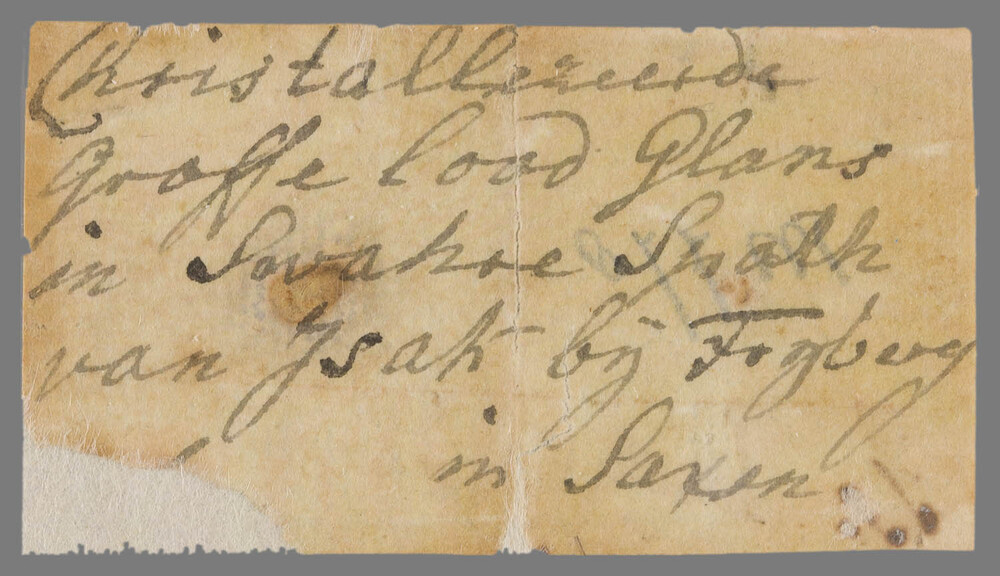 Christallereerde
Groffe lood Glans
in Swahre Spath
van Ysak bÿ Frÿberg
in Saxen